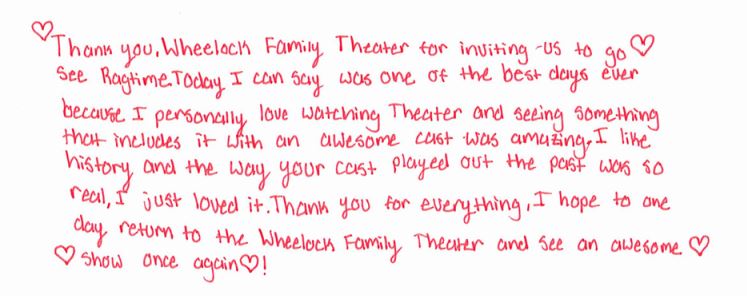 ♡Thank you, Wheelock Family Theater for inviting us to go♡
see Ragtime. Today I can say was one of the best days ever
because I personally love watching Theater and seeing something
that includes it with an awesome cast was amazing. I like
history and the way your cast played out the past was so
real, I just loved it. Thank you for everything, I hope to one
day return to the Wheelock Family Theater and see an awesome♡
♡show once again♡!